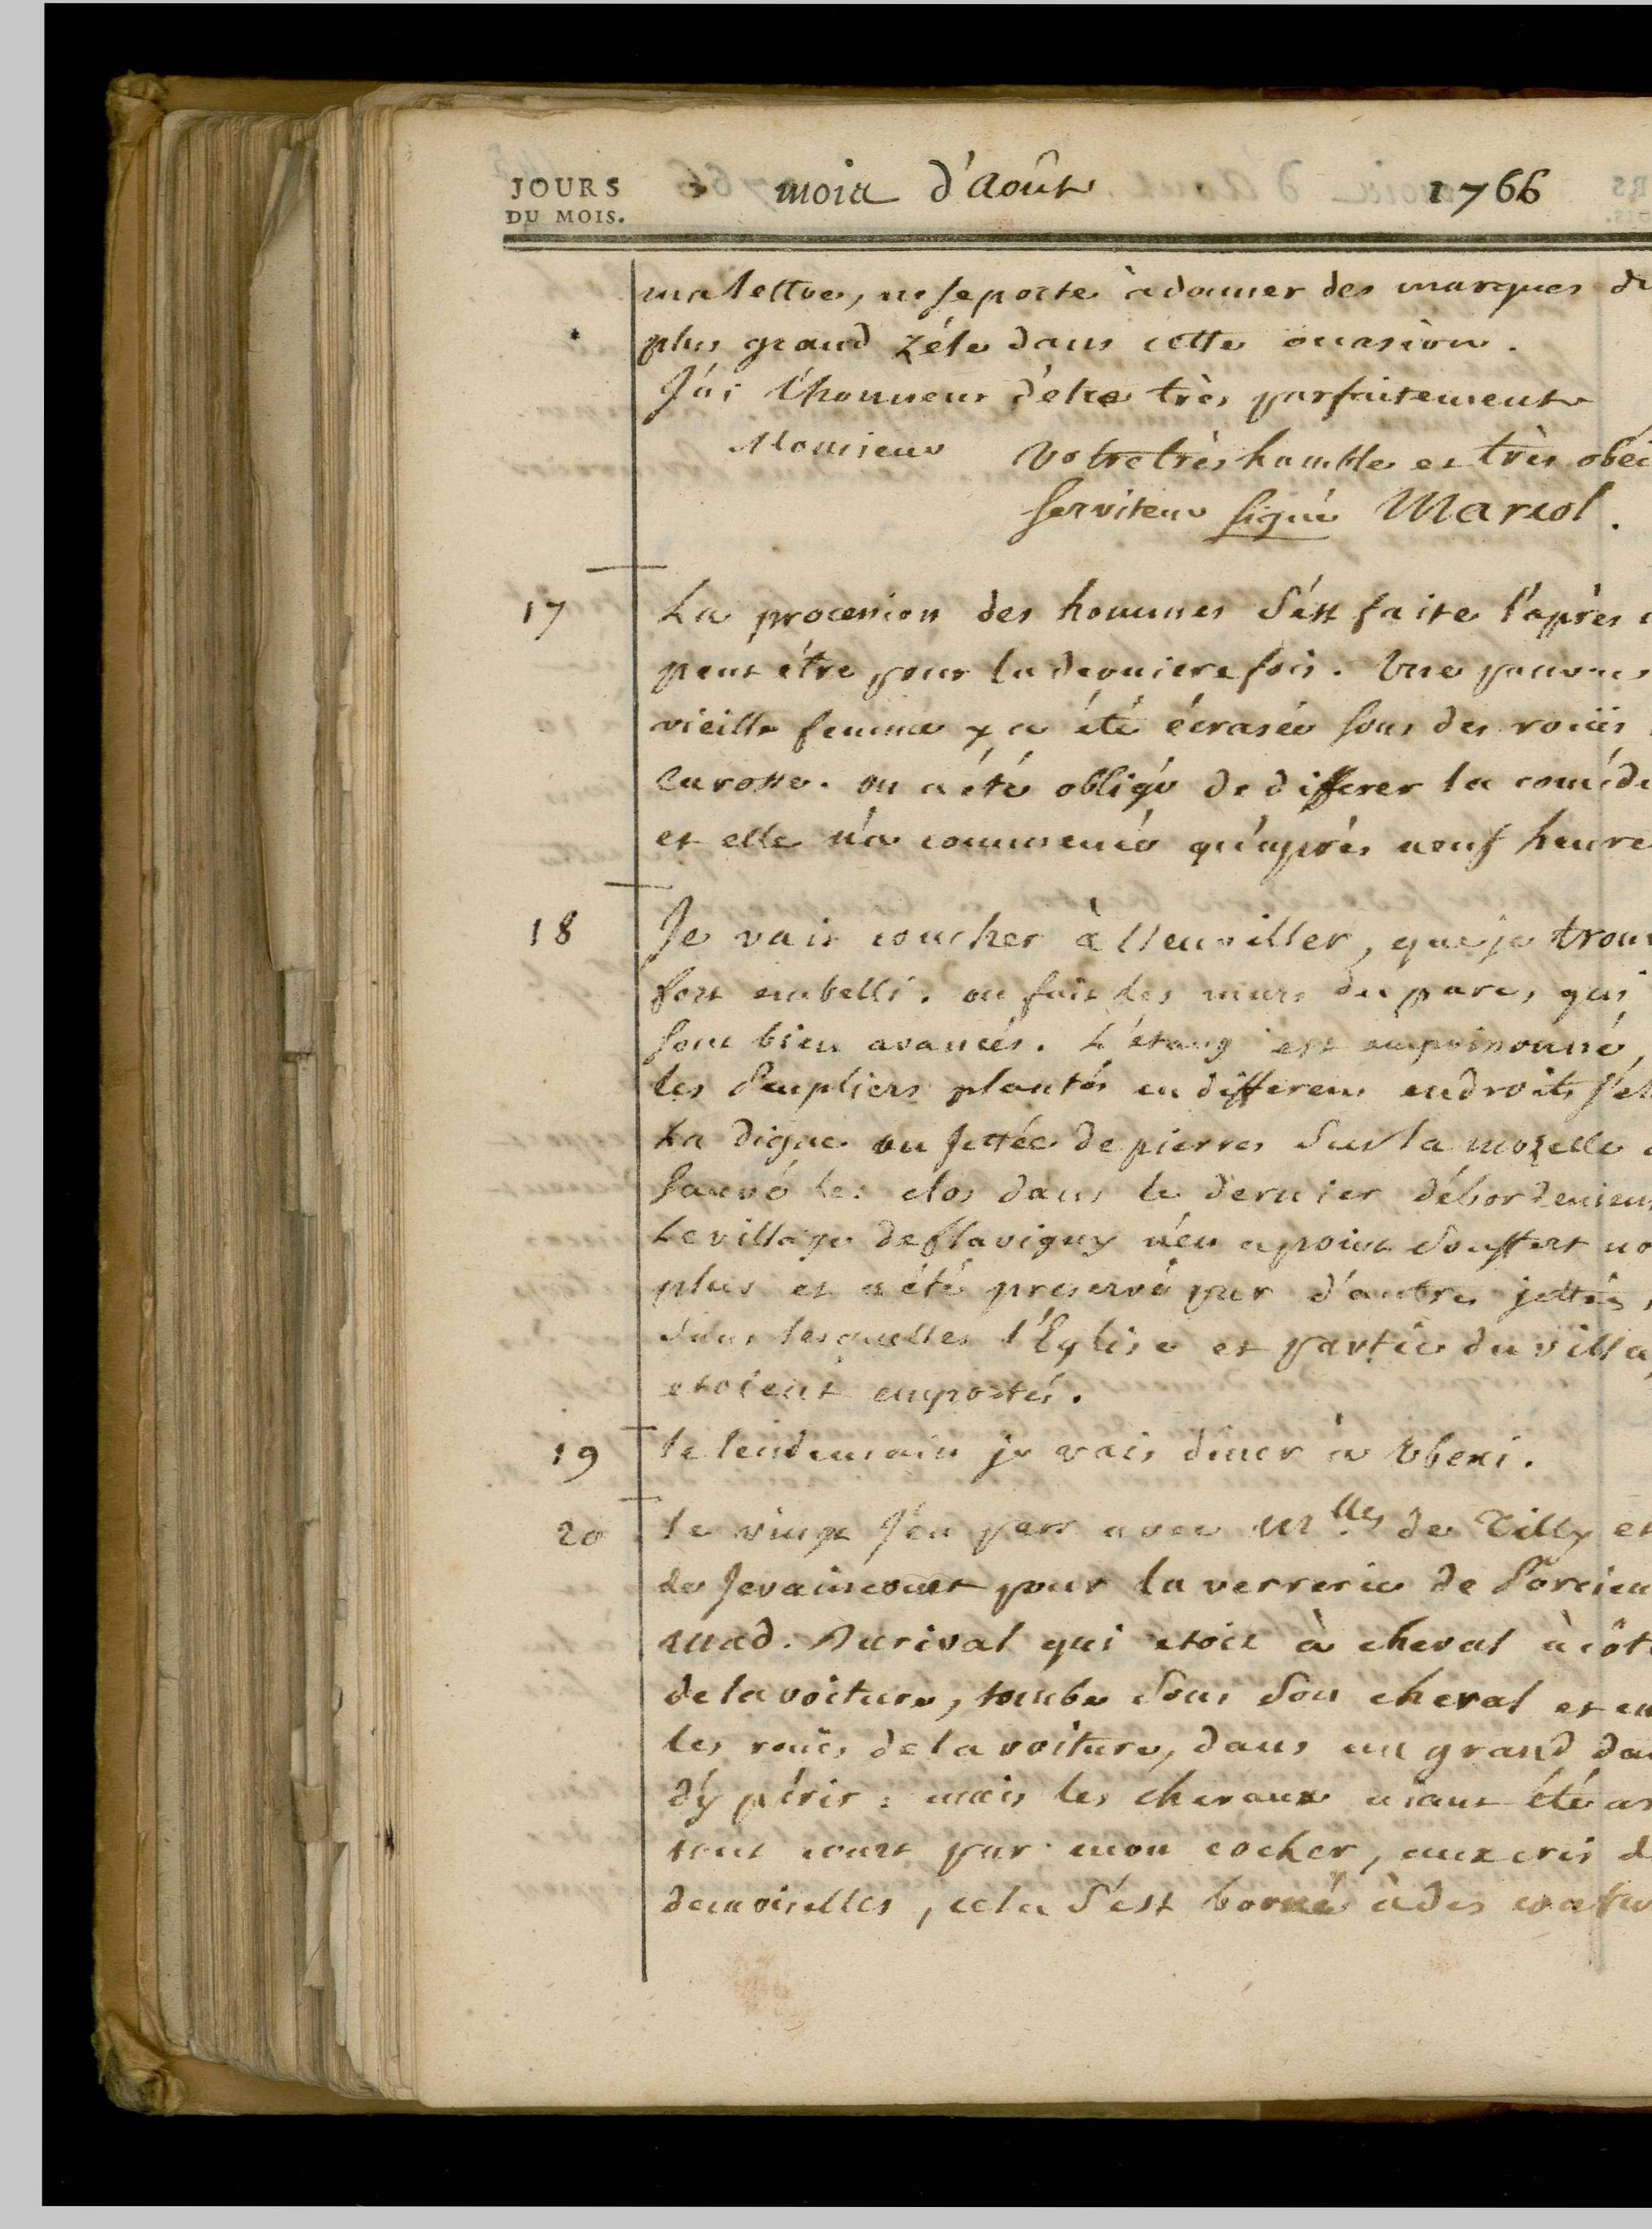 JOURS
DU MOIS.
mois d'Août 1766
ma lettre, ne se porte à donner des marques du
plus grand zéle dans cette occasion.
J'ai l'honneur d'etre très parfaitement
Monsieur Votre très humble et très obéi
serviteur signé Marcol.
17 La procession des hommes s'est faite l'après
peut être pour la derniere fois. Une pauvre
vieille femme y a été écrasée sous des roües
carosse. on a été obligé de differer la comédi
et elle n'a commencé qu'après neuf heure
18 Je vais coucher à Heuviller, que je trou
fort embelli. on fait les murs du parc, qui
sont bien avancés. L'étang est empoissonné,
les Peupliers plantés en differens endroits s'él
La digue ou jettée de pierres sur la mozelle a
sauvé les clos dans le dernier débordemen
Le village de flavigny n'en a point souffert no
plus et a été preservé par d'autres jettées,
sans lesquelles l'Eglise et partie du villa
etoient emportés.
19 le lendemain je vais diner à Ubexi.
20 le vingt j'en pars avec Mlles de Tilly et
de Jevaincourt pour la verrerie de Porcieu
mad. Durival qui etoit à cheval à côt
de la voiture, tombe sous son cheval et en
les roües de la voiture, dans un grand dan
d'y périr : mais les chevaux aiant été ar
tout court par mon cocher, aux cris d
demoiselles, cela s'est borné à des contu